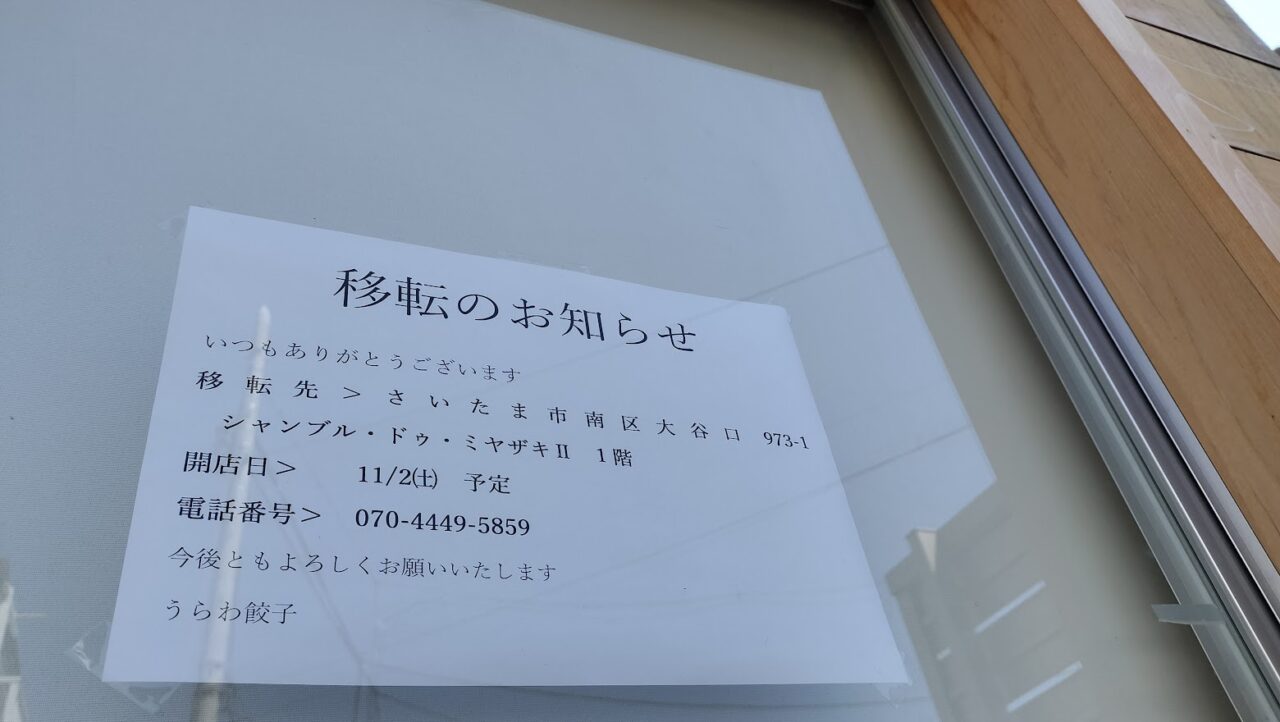 移転のお知らせ
いつもありがとうございます
移転先＞さいたま市南区大谷口 973-1
シャンブル・ドゥ・ミヤザキⅡ 1階
開店日＞ 11/2㈯ 予定
電話番号＞ 070-4449-5859
今後ともよろしくお願いいたします
うらわ餃子